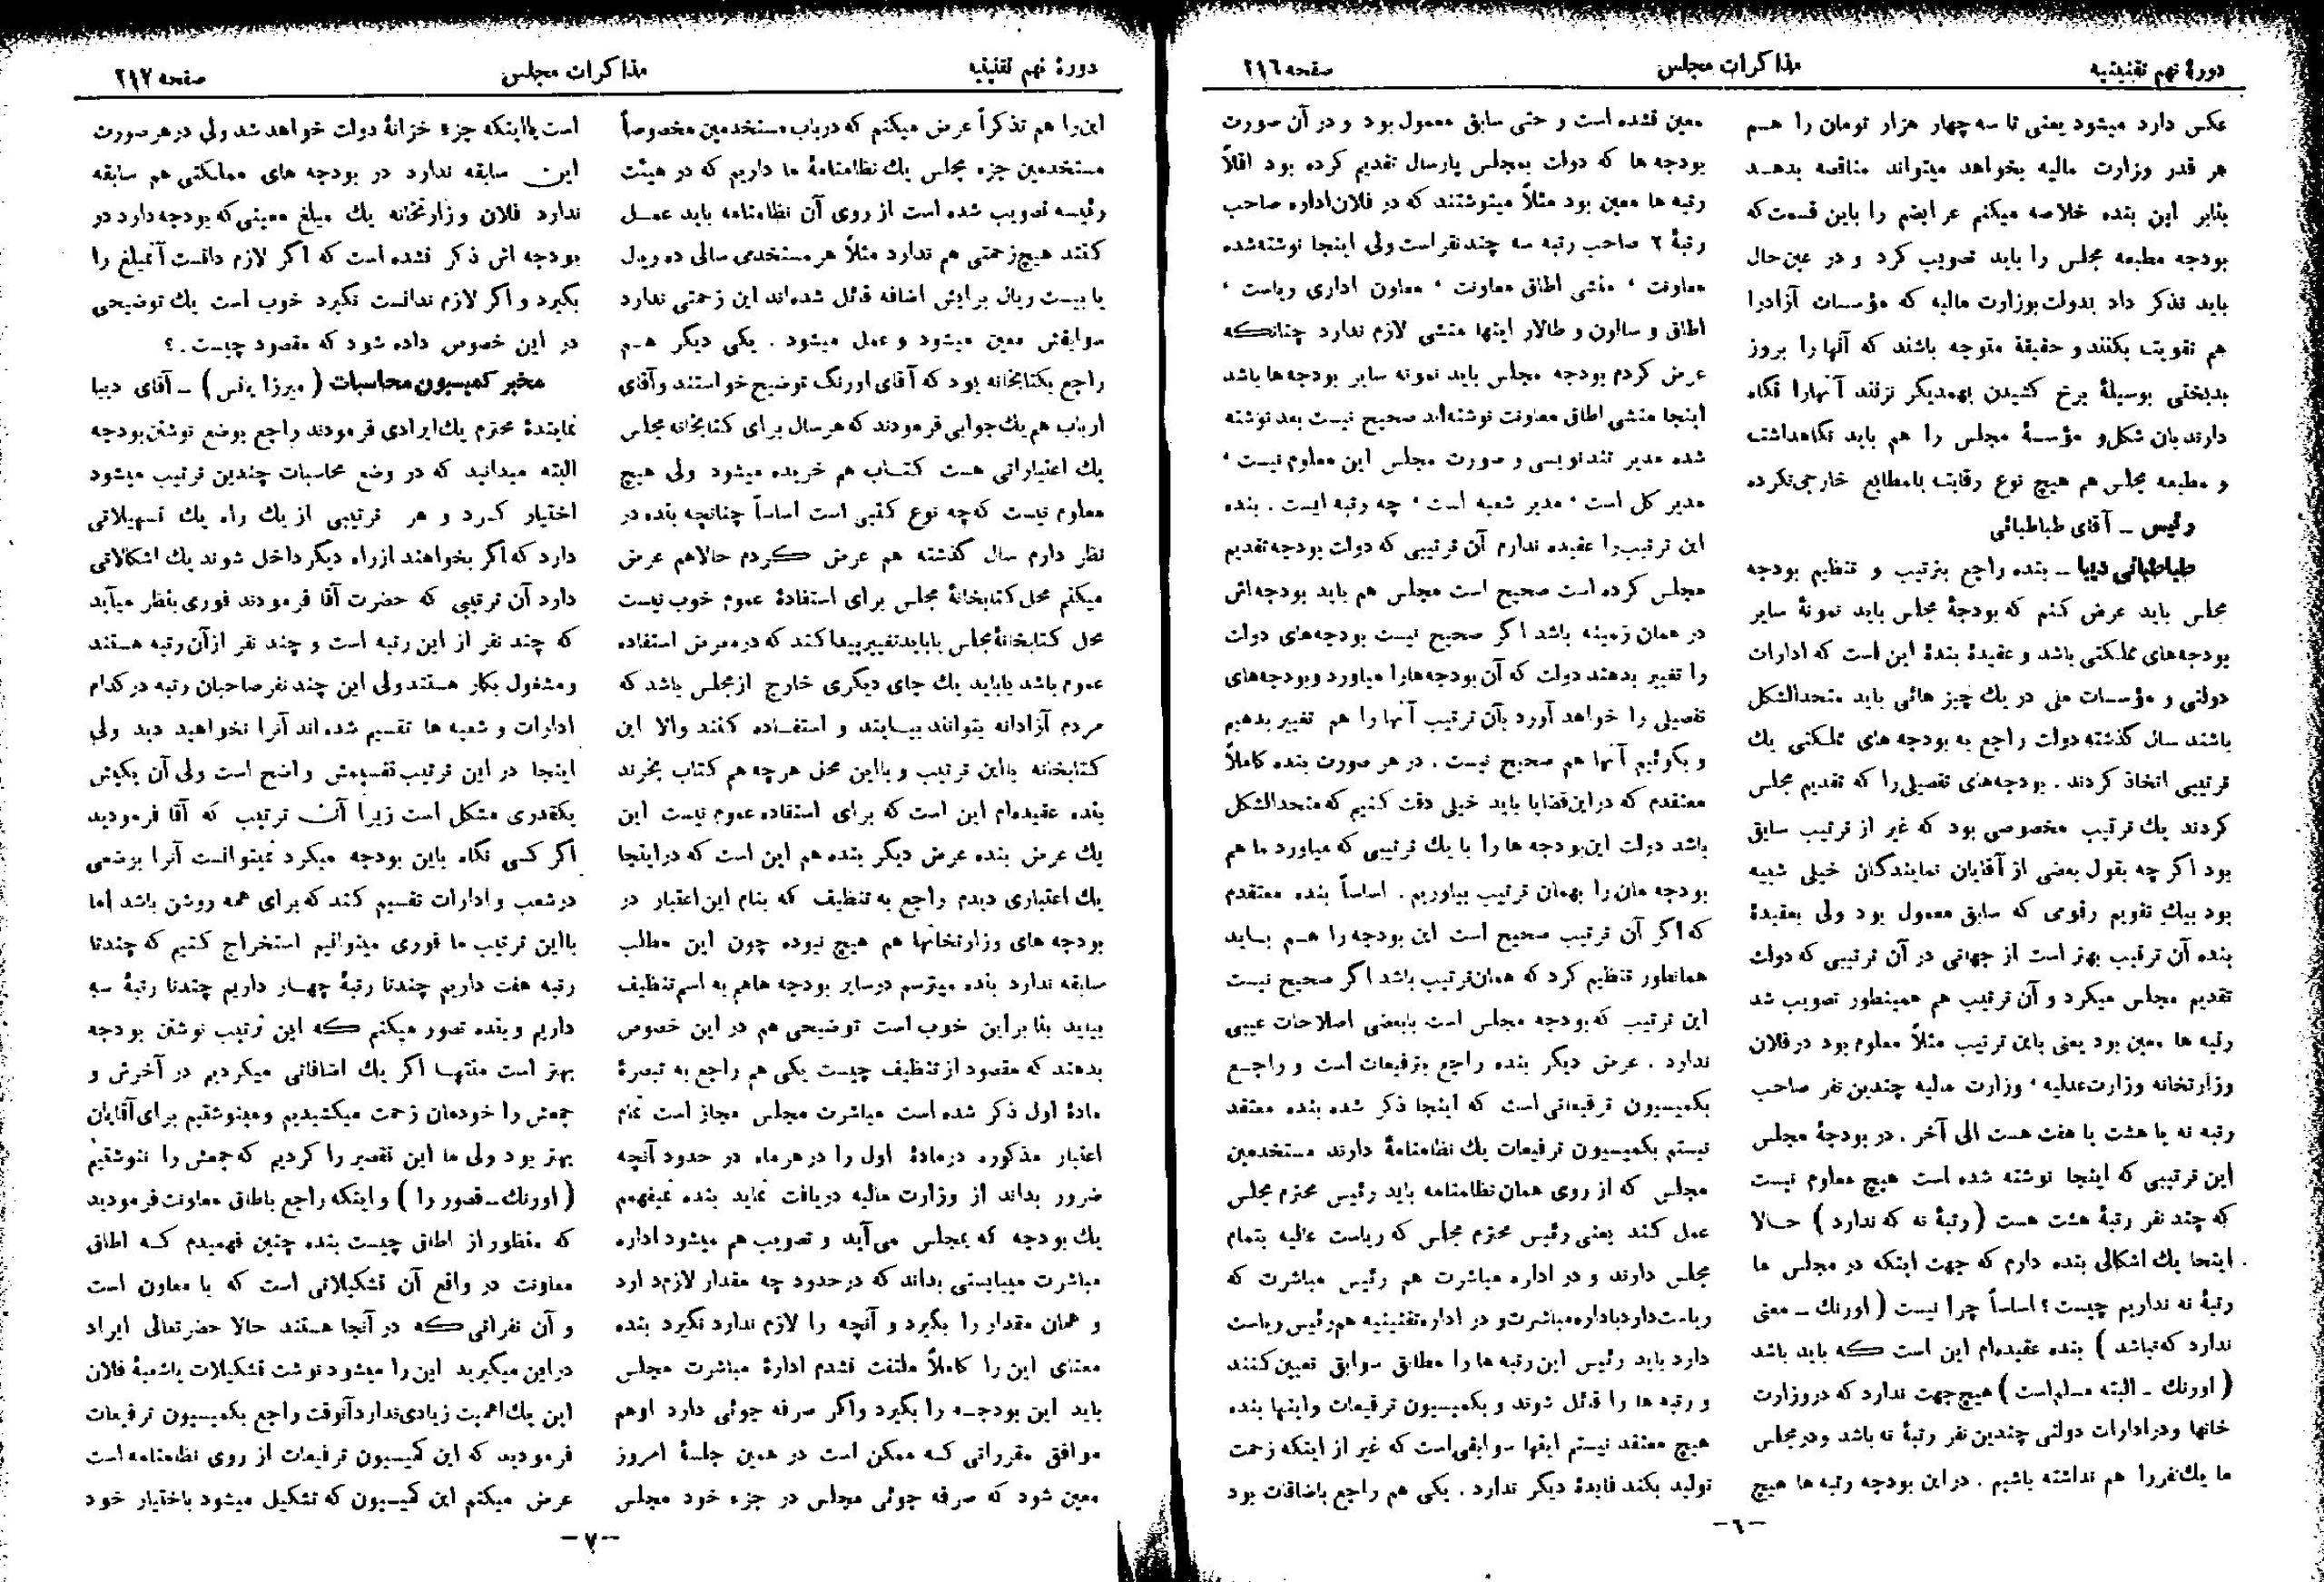 دورهٔ نهم تقنینیه
مذاکرات مجلس
صفحه ۲۱۶
عکس دارد میشود یعنی تا سه چهار هزار تومان را هم
هر قدر وزارت مالیه بخواهد میتواند مناقصه بدهد
بنابر این بنده خلاصه میکنم عرایضم را باین قسمت که
بودجه مطبعه مجلس را باید تصویب کرد و در عین حال
باید تذکر داد بدولت بوزارت مالیه که مؤسسات آزادرا
هم تقویت بکنند و حقیقة متوجه باشند که آنها را بروز
بدبختی بوسیلهٔ برخ کشیدن بهمدیگر نزنند آنهارا نگاه
دارند بان شکل و مؤسسهٔ مجلس را هم باید نگاهداشت
و مطبعه مجلس هم هیچ نوع رقابت بامطابع خارجی نکرده
رئیس ـ آقای طباطبائی
طباطبائی دیبا ـ بنده راجع بترتیب و تنظیم بودجه
مجلس باید عرض کنم که بودجهٔ مجلس باید نمونهٔ سایر
بودجه‌های مملکتی باشد و عقیدهٔ بندهٔ این است که ادارات
دولتی و مؤسسات ملی در یك چیز هائی باید متحدالشکل
باشند سال گذشته دولت راجع به بودجه های مملکتی یك
ترتیبی اتخاذ کردند . بودجه‌های تفصیلی را که تقدیم مجلس
کردند یك ترتیب مخصوصی بود که غیر از ترتیب سابق
بود اگر چه بقول بعضی از آقایان نمایندگان خیلی شبیه
بود بیك تقویم رقومی که سابق معمول بود ولی بعقیدهٔ
بنده آن ترتیب بهتر است از جهاتی در آن ترتیبی که دولت
تقدیم مجلس میکرد و آن ترتیب هم همینطور تصویب شد
رتبه ها معین بود یعنی باین ترتیب مثلاً معلوم بود در فلان
وزارتخانه وزارت عدلیه ، وزارت مالیه چندین نفر صاحب
رتبه نه یا هشت یا هفت هست الی آخر . در بودجهٔ مجلس
این ترتیبی که اینجا نوشته شده است هیچ معلوم نیست
که چند نفر رتبهٔ هشت هست (رتبهٔ نه که ندارد) حالا
اینجا یك اشکالی بنده دارم که جهت اینکه در مجلس ما
رتبهٔ نه نداریم چیست ؟ اساساً چرا نیست ( اورنك ـ معنی
ندارد که نباشد ) بنده عقیده‌ام این است که باید باشد
( اورنك ـ البته مسلم است ) هیچ جهت ندارد که در وزارت
خانها و در ادارات دولتی چندین نفر رتبهٔ نه باشد و در مجلس
ما یك نفر را هم نداشته باشیم . در این بودجه رتبه ها هیچ
معین نشده است و حتی سابق معمول بود و در آن صورت
بودجه ها که دولت بمجلس پارسال تقدیم کرده بود اقلاً
رتبه ها معین بود مثلاً مینوشتند که در فلان اداره صاحب
رتبهٔ ۲ صاحب رتبه سه چند نفر است ولی اینجا نوشته شده
معاونت ، منشی اطاق معاونت ، معاون اداری ریاست ،
اطاق و سالون و طالار اینها منشی لازم ندارد چنانکه
عرض کردم بودجه مجلس باید نمونه سایر بودجه‌ها باشد
اینجا منشی اطاق معاونت نوشته‌اند صحیح نیست بعد نوشته
شده مدیر تندنویسی و صورت مجلس این معلوم نیست ،
مدیر کل است ، مدیر شعبه است ، چه رتبه ایست . بنده
این ترتیب را عقیده ندارم آن ترتیبی که دولت بودجه تقدیم
مجلس کرده است صحیح است مجلس هم باید بودجه‌اش
در همان زمینه باشد اگر صحیح نیست بودجه‌های دولت
را تغییر بدهند دولت که آن بودجه‌ها را میاورد و بودجه‌های
تفصیلی را خواهد آورد بآن ترتیب آنها را هم تغییر بدهیم
و بگوئیم آنها هم صحیح نیست . در هر صورت بنده کاملاً
معتقدم که در این قضایا باید خیلی دقت کنیم که متحدالشکل
باشد دولت این بودجه ها را با یك ترتیبی که میاورد ما هم
بودجه مان را بهمان ترتیب بیاوریم . اساساً بنده معتقدم
که اگر آن ترتیب صحیح است این بودجه را هم باید
همانطور تنظیم کرد که همان ترتیب باشد اگر صحیح نیست
این ترتیب که بودجه مجلس است بابعضی اصلاحات عیبی
ندارد . عرض دیگر بنده راجع بترفیعات است و راجع
بکمیسیون ترفیعاتی است که اینجا ذکر شده بنده معتقد
نیستم بکمیسیون ترفیعات یك نظامنامهٔ دارند مستخدمین
مجلس که از روی همان نظامنامه باید رئیس محترم مجلس
عمل کند یعنی رئیس محترم مجلس که ریاست عالیه بتمام
مجلس دارند و در اداره مباشرت هم رئیس مباشرت که
ریاست دارد باداره مباشرت و در اداره تقنینیه هم رئیس ریاست
دارد باید رئیس این رتبه ها را مطابق سوابق تعیین کنند
و رتبه ها را قائل شوند و بکمیسیون ترفیعات واینها بنده
هیچ معتقد نیستم اینها سوابقی است که غیر از اینکه زحمت
تولید بکند فایدهٔ دیگر ندارد . یکی هم راجع باضافات بود
ـ ٦ ـ
دورهٔ نهم تقنینیه
مذاکرات مجلس
صفحه ۲۱۷
این را هم تذکراً عرض میکنم که در باب مستخدمین مخصوصاً
مستخدمین جزء مجلس یك نظامنامهٔ ما داریم که در هیئت
رئیسه تصویب شده است از روی آن نظامنامه باید عمل
کنند هیچ زحمتی هم ندارد مثلاً هر مستخدمی سالی ده ریال
یا بیست ریال برایش اضافه قائل شده‌اند این زحمتی ندارد
سوابقش معین میشود و عمل میشود . یکی دیگر هم
راجع بکتابخانه بود که آقای اورنگ توضیح خواستند وآقای
ارباب هم یك جوابی فرمودند که هر سال برای کتابخانه مجلس
یك اعتباراتی هست کتاب هم خریده میشود ولی هیچ
معلوم نیست که چه نوع کتبی است اساساً چنانچه بنده در
نظر دارم سال گذشته هم عرض کردم حالاهم عرض
میکنم محل کتابخانهٔ مجلس برای استفادهٔ عموم خوب نیست
محل کتابخانهٔ مجلس یا باید تغییر پیدا کند که در معرض استفاده
عموم باشد یا باید یك جای دیگری خارج از مجلس باشد که
مردم آزادانه بتوانند بیایند و استفاده کنند والا این
کتابخانه بااین ترتیب و بااین محل هرچه هم کتاب بخرند
بنده عقیده‌ام این است که برای استفاده عموم نیست این
یك عرض بنده عرض دیگر بنده هم این است که در اینجا
یك اعتباری دیدم راجع به تنظیف که بنام این اعتبار در
بودجه های وزارتخانها هم هیچ نبوده چون این مطلب
سابقه ندارد بنده میترسم در سایر بودجه ها هم به اسم تنظیف
بیاید بنا براین خوب است توضیحی هم در این خصوص
بدهند که مقصود از تنظیف چیست یکی هم راجع به تبصرهٔ
مادهٔ اول ذکر شده است مباشرت مجلس مجاز است تمام
اعتبار مذکوره در مادهٔ اول را در هر ماه در حدود آنچه
ضرور بداند از وزارت مالیه دریافت نماید بنده نمیفهمم
یك بودجه که بمجلس می‌آید و تصویب هم میشود اداره
مباشرت میبایستی بداند که در حدود چه مقدار لازم دارد
و همان مقدار را بگیرد و آنچه را لازم ندارد نگیرد بنده
معنای این را کاملاً ملتفت نشدم ادارهٔ مباشرت مجلس
باید این بودجه را بگیرد واگر صرفه جوئی دارد اوهم
موافق مقرراتی که ممکن است در همین جلسهٔ امروز
معین شود که صرفه جوئی مجلس در جزء خود مجلس
است یااینکه جزء خزانهٔ دولت خواهد شد ولی در هر صورت
این سابقه ندارد در بودجه های مملکتی هم سابقه
ندارد فلان وزارتخانه یك مبلغ معینی که بودجه دارد در
بودجه اش ذکر نشده است که اگر لازم دانست آنمبلغ را
بگیرد و اگر لازم ندانست نگیرد خوب است یك توضیحی
در این خصوص داده شود که مقصود چیست . ؟
مخبر کمیسیون محاسبات ( میرزا یانس ) ـ آقای دیبا
نمایندهٔ محترم یك ایرادی فرمودند راجع بوضع نوشتن بودجه
البته میدانید که در وضع محاسبات چندین ترتیب میشود
اختیار کرد و هر ترتیبی از یك راه یك تسهیلاتی
دارد که اگر بخواهند از راه دیگر داخل شوند یك اشکالاتی
دارد آن ترتیبی که حضرت آقا فرمودند فوری بنظر میآید
که چند نفر از این رتبه است و چند نفر ازآن رتبه هستند
و مشغول بکار هستند ولی این چند نفر صاحبان رتبه در کدام
ادارات و شعبه ها تقسیم شده‌اند آنرا نخواهید دید ولی
اینجا در این ترتیب تقسیمش واضح است ولی آن یکیش
یکقدری مشکل است زیرا آن ترتیب که آقا فرمودید
اگر کسی نگاه باین بودجه میکرد نمیتوانست آنرا بوضعی
در شعب و ادارات تقسیم کند که برای همه روشن باشد اما
بااین ترتیب ما فوری میتوانیم استخراج کنیم که چندتا
رتبه هفت داریم چندتا رتبهٔ چهار داریم چندتا رتبهٔ سه
داریم و بنده تصور میکنم که این ترتیب نوشتن بودجه
بهتر است منتها اگر یك اضافاتی میکردیم در آخرش و
جمعش را خودمان زحمت میکشیدیم و مینوشتیم برای آقایان
بهتر بود ولی ما این تقصیر را کردیم که جمعش را ننوشتیم
( اورنك ـ قصور را ) و اینکه راجع باطاق معاونت فرمودید
که منظور از اطاق چیست بنده چنین فهمیدم که اطاق
معاونت در واقع آن تشکیلاتی است که با معاون است
و آن نفراتی که در آنجا هستند حالا حضرتعالی ایراد
در این میگیرید این را میشود نوشت تشکیلات یاشعبهٔ فلان
این یك اهمیت زیادی ندارد آنوقت راجع بکمیسیون ترفیعات
فرمودید که این کمیسیون ترفیعات از روی نظامنامه است
عرض میکنم این کمیسیون که تشکیل میشود باختیار خود
ـ ۷ ـ